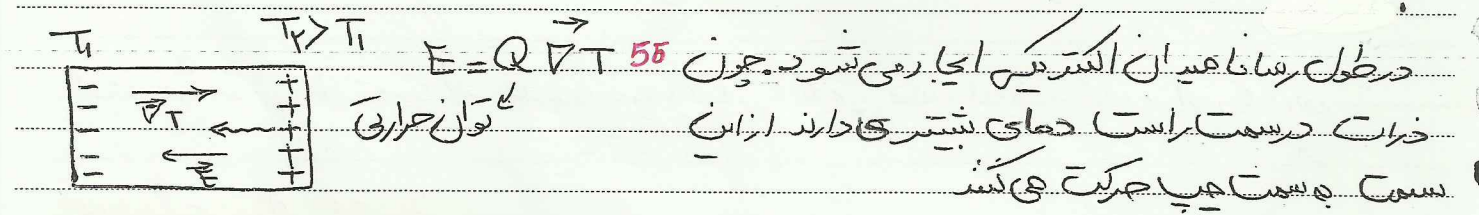 T₁ T₂ > T₁
در طول رسانا میدان الکتریکی ایجاد می‌شود. چون 55 E = Q ∇⃗T
ذرات در سمت راست دمای بیشتری دارند از این توان حرارتی
سمت به سمت چپ حرکت می‌کنند
− − − − −
+ + + + +
∇⃗T
E⃗